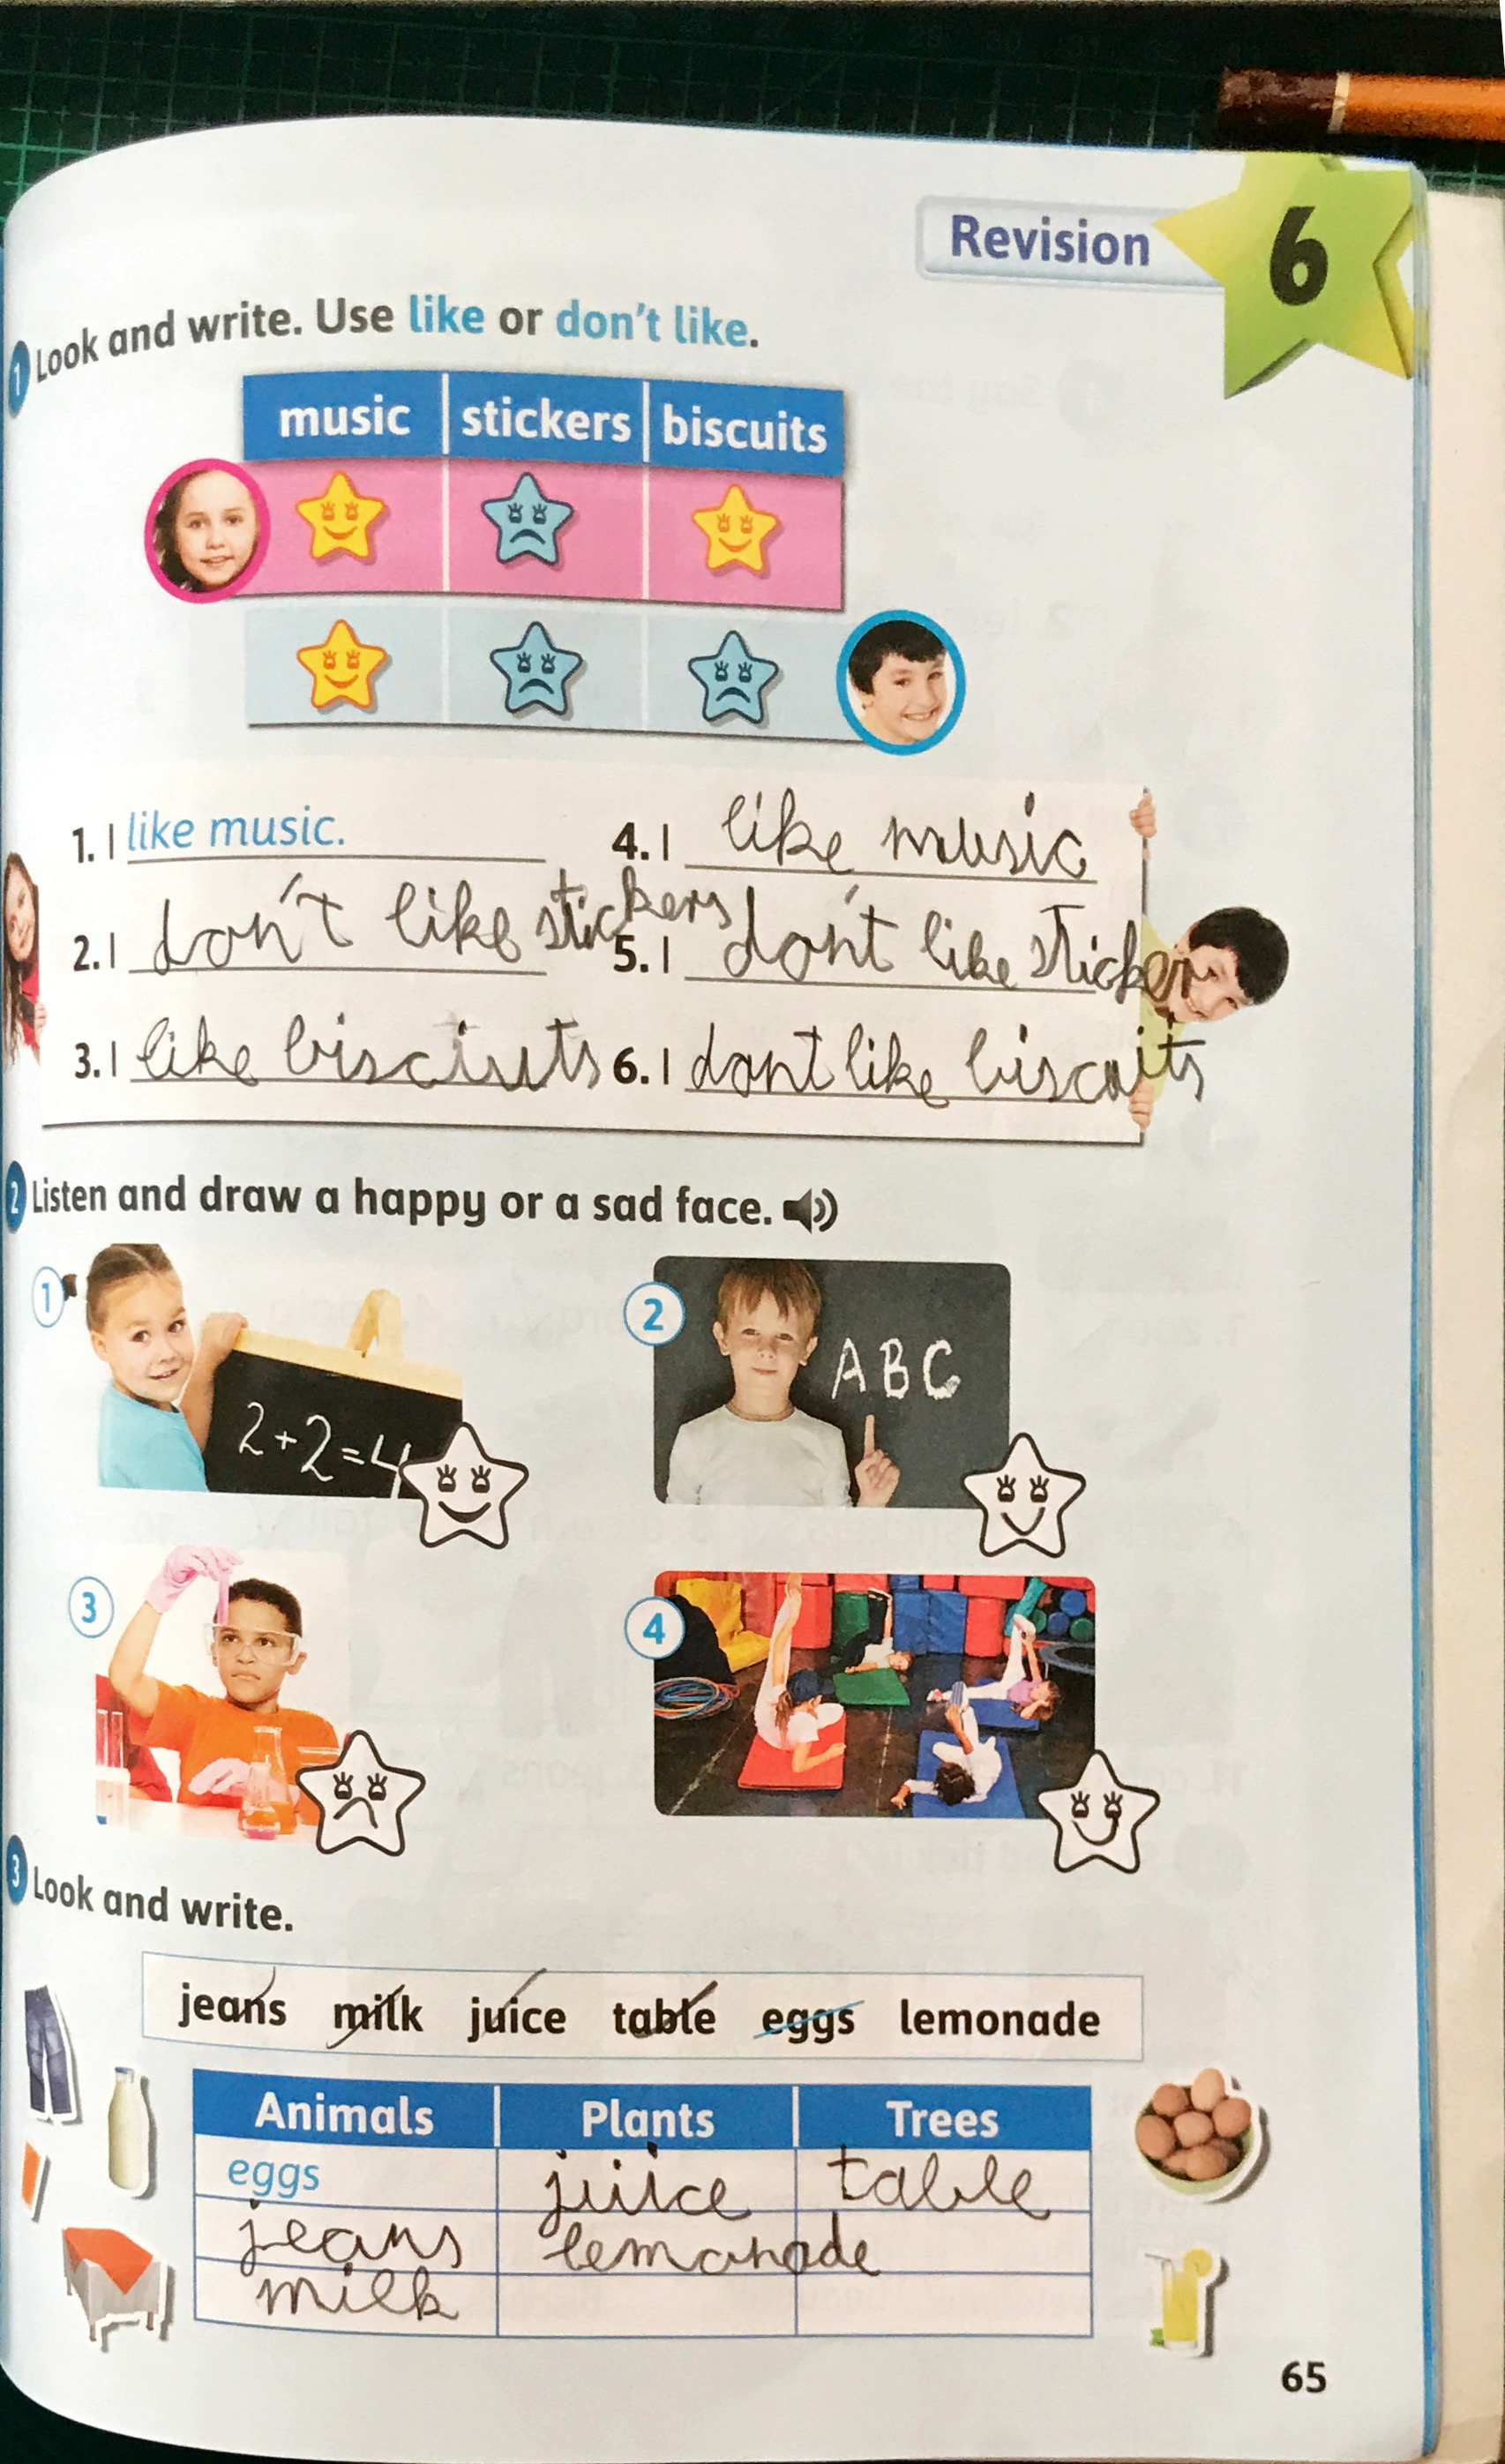 Revision 6
1 Look and write. Use like or don't like.
music stickers biscuits
1. I like music.
2. I don't like stickers
3. I like bisciuts
4. I like music
5. I don't like sticker
6. I dont like biscuits
2 Listen and draw a happy or a sad face.
1
2+2=4
2
ABC
3
4
3 Look and write.
jeans milk juice table eggs lemonade
Animals Plants Trees
eggs juice table
jeans lemonade
milk
65